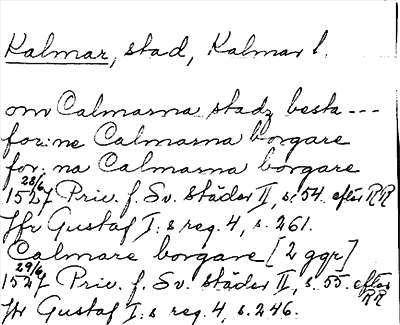 Kalmar, stad, Kalmar l.
om Calmarna stadz besta---
for:ne Calmarna borgare
for:na Calmarna borgare
28/6
1527 Priv. f. Sv. städer II, s. 54. efter RR
Jfr Gustaf I:s reg. 4, s. 261.
Calmare borgare [2 ggr]
29/6
1527 Priv. f. Sv. städer II, s. 55. efter RR
Jfr Gustaf I:s reg. 4, s. 246.